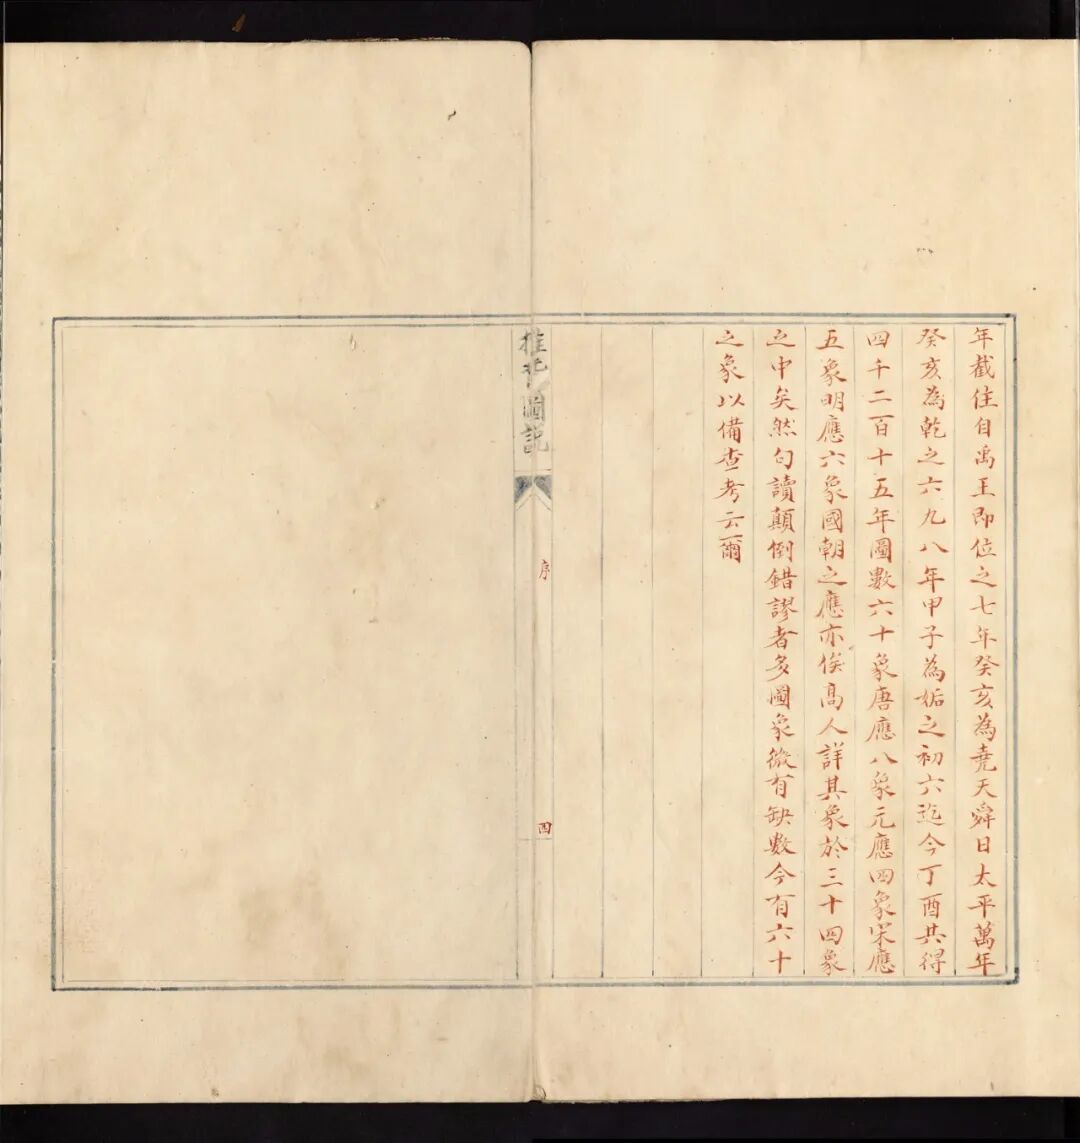 年截住自禹王即位之七年癸亥為堯天舜日太平萬年
癸亥為乾之六九八年甲子為姤之初六迄今丁酉共得
四千二百十五年圖數六十象唐應八象元應四象宋應
五象明應六象國朝之應亦俟高人詳其象於三十四象
之中矣然句讀顛倒錯謬者多圖象微有缺數今有六十
之象以備查考云爾
推背圖說
序
四